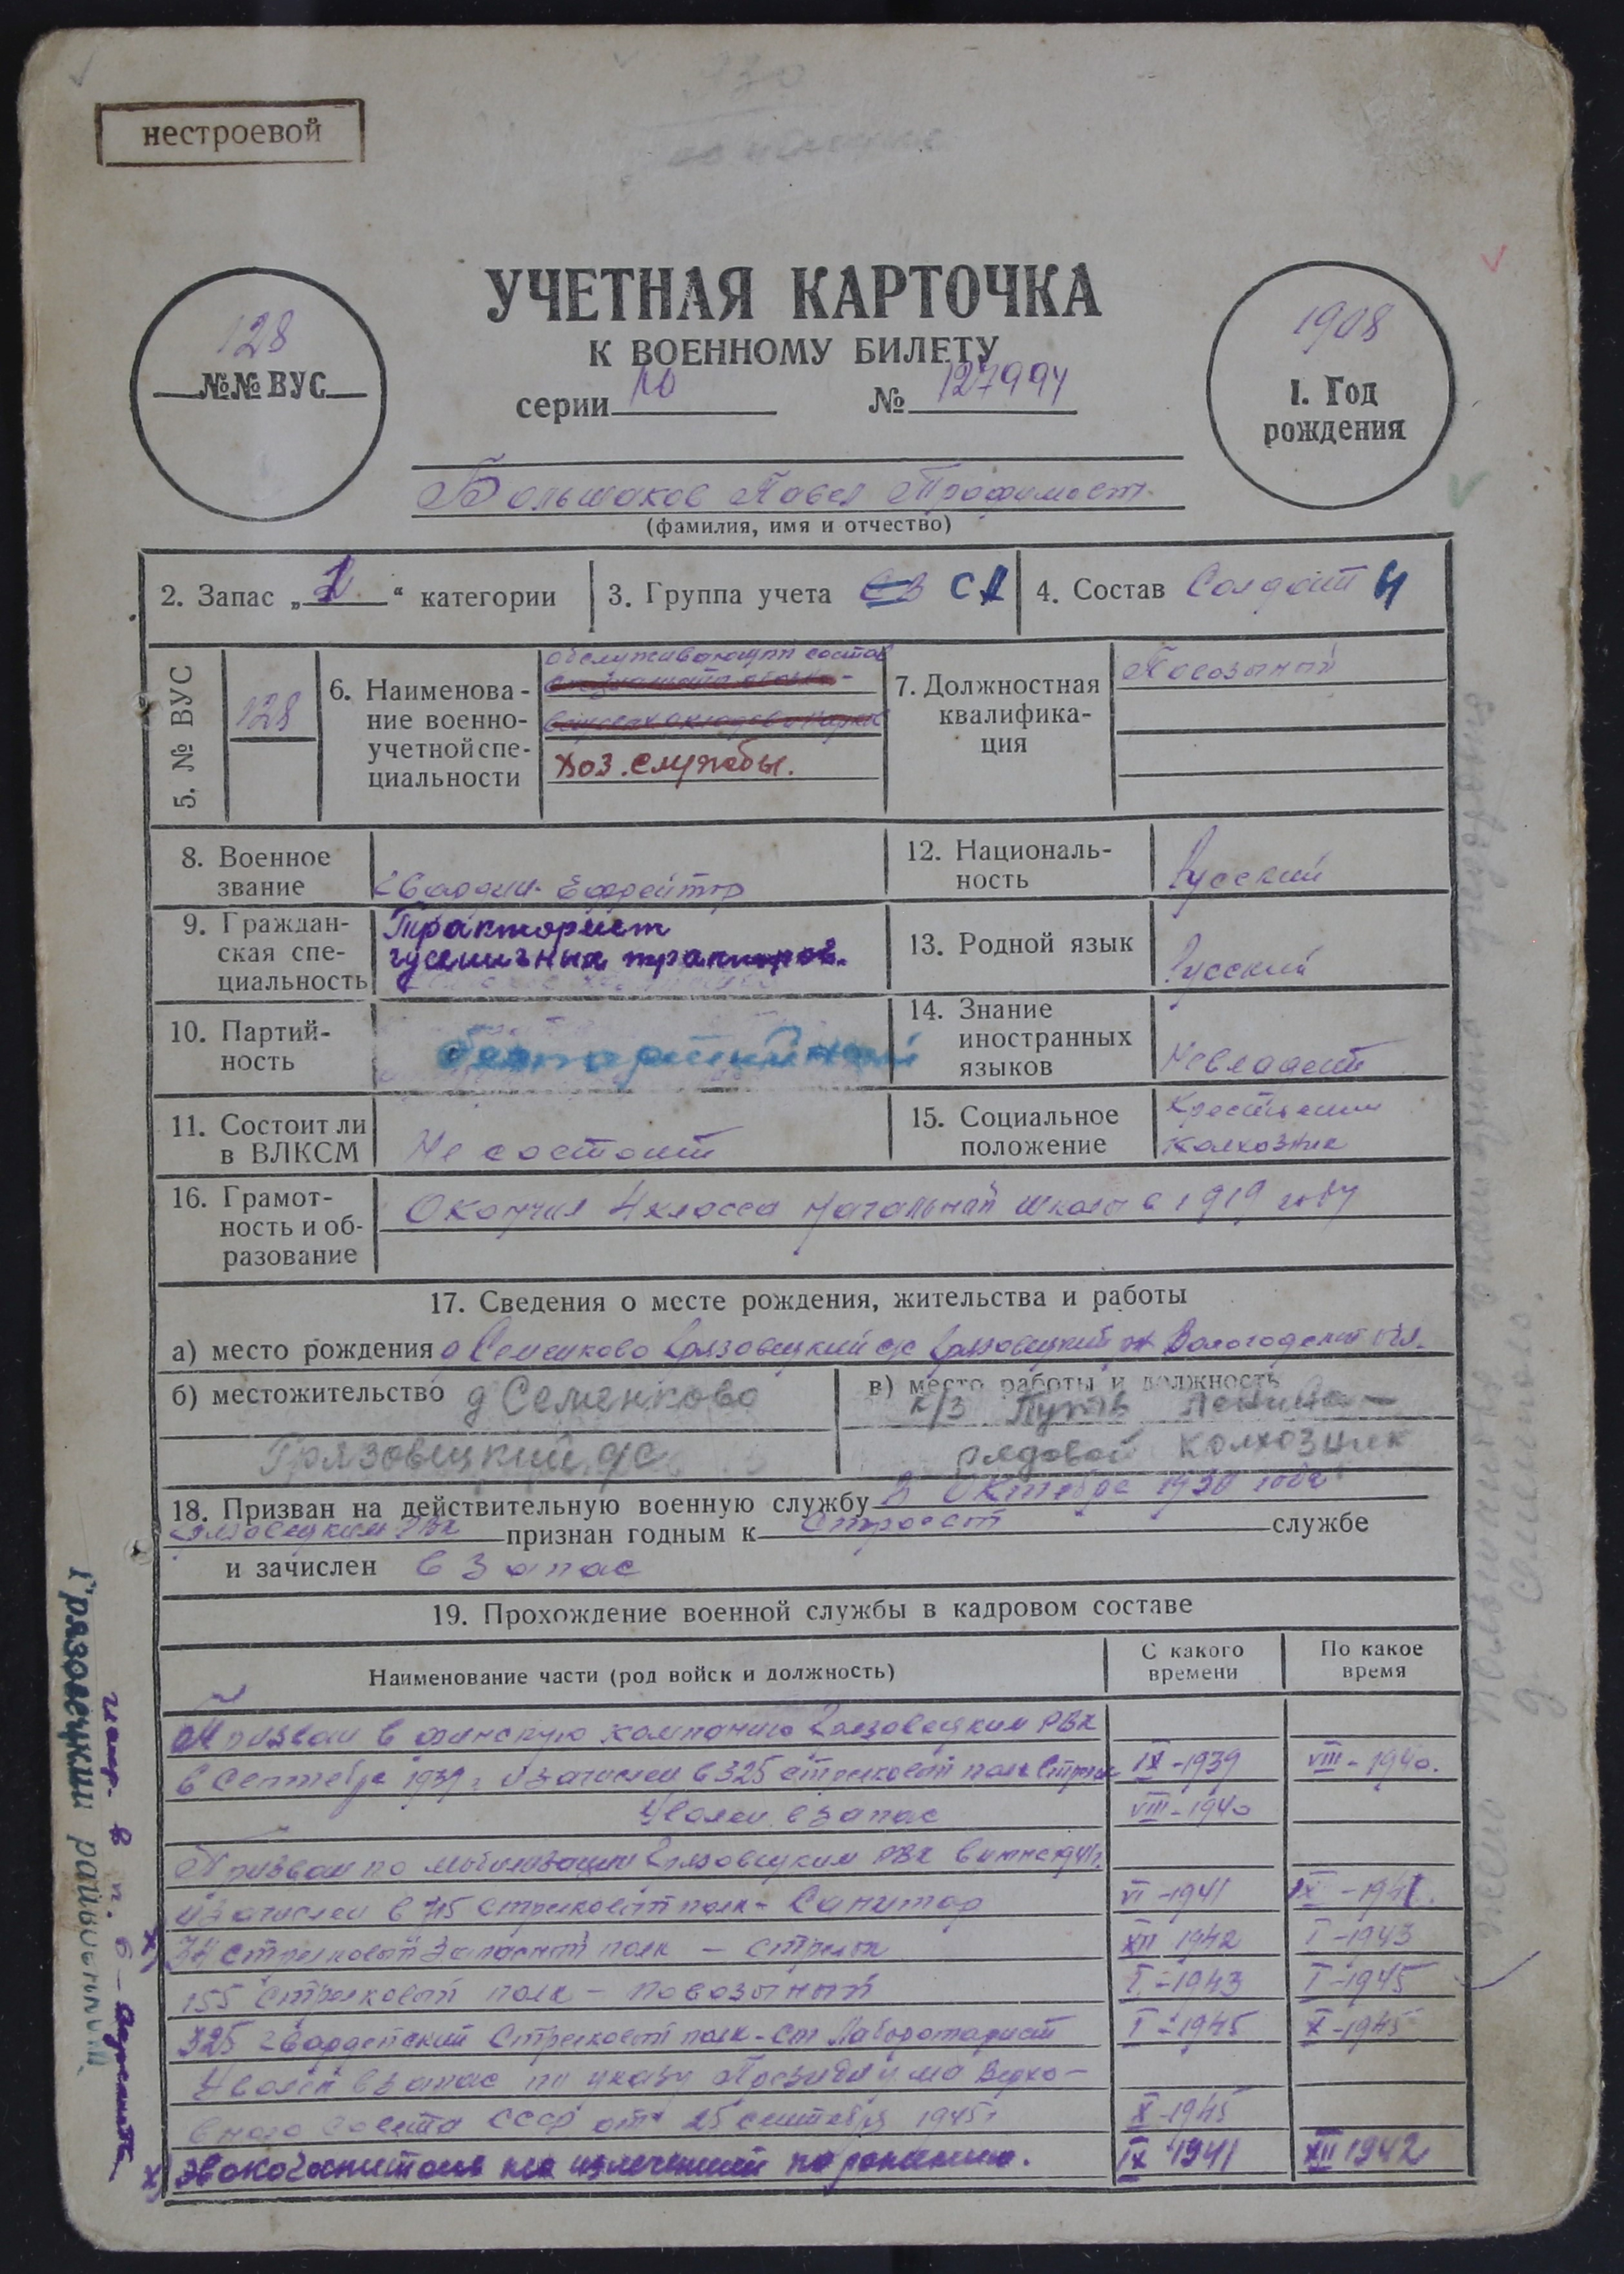 нестроевой
УЧЕТНАЯ КАРТОЧКА
К ВОЕННОМУ БИЛЕТУ
серии № 127994
128
№№ ВУС
1908
1. Год
рождения
Большаков Павел Трофимович
(фамилия, имя и отчество)
2. Запас „ “ категории
3. Группа учета
4. Состав Солдат
5. № ВУС
128
6. Наименова-
ние военно-
учетной спе-
циальности
обслуживающий состав
хоз. службы.
7. Должностная
квалифика-
ция
Повозочный
8. Военное
звание
Гвардии Ефрейтор
9. Граждан-
ская спе-
циальность
Тракторист
гусеничных тракторов.
10. Партий-
ность
беспартийный
11. Состоит ли
в ВЛКСМ
Не состоит
12. Националь-
ность
Русский
13. Родной язык
Русский
14. Знание
иностранных
языков
Не владеет
15. Социальное
положение
Крестьянин
колхозник
16. Грамот-
ность и об-
разование
Окончил 4 класса начальной школы в 1919 году
17. Сведения о месте рождения, жительства и работы
а) место рождения д Семенково Грязовецкий с/с Грязовецкий Вологодской обл.
б) местожительство д Семенково
Грязовецкий с/с
в) место работы и должность
к/з Путь Ленина —
рядовой колхозник
18. Призван на действительную военную службу в Октябре 1930 года
Грязовецким РВК признан годным к строевой службе
и зачислен в запас
19. Прохождение военной службы в кадровом составе
Наименование части (род войск и должность)
С какого
времени
По какое
время
Призван в финскую кампанию Грязовецким РВК
в Сентябре 1939 г. и зачислен в 325 стрелковый полк Стрелок IX-1939 VIII-1940.
Уволен в запас VIII-1940
Призван по мобилизации Грязовецким РВК в июне 1941 г.
и зачислен в 715 стрелковый полк - Санитар VI-1941 IX-1941.
х) 34 стрелковый запасный полк — стрелок XII 1942 I-1943
155 стрелковый полк — повозочный I-1943 I-1945
325 гвардейский Стрелковый полк - ст I-1945 X-1945
Уволен в запас по указу Президиума Верхо-
вного Совета СССР от 25 сентября 1945 г. X-1945
х) Эвакогоспиталь на излечении по ранению. IX 1941 XII 1942
Грязовецкий район